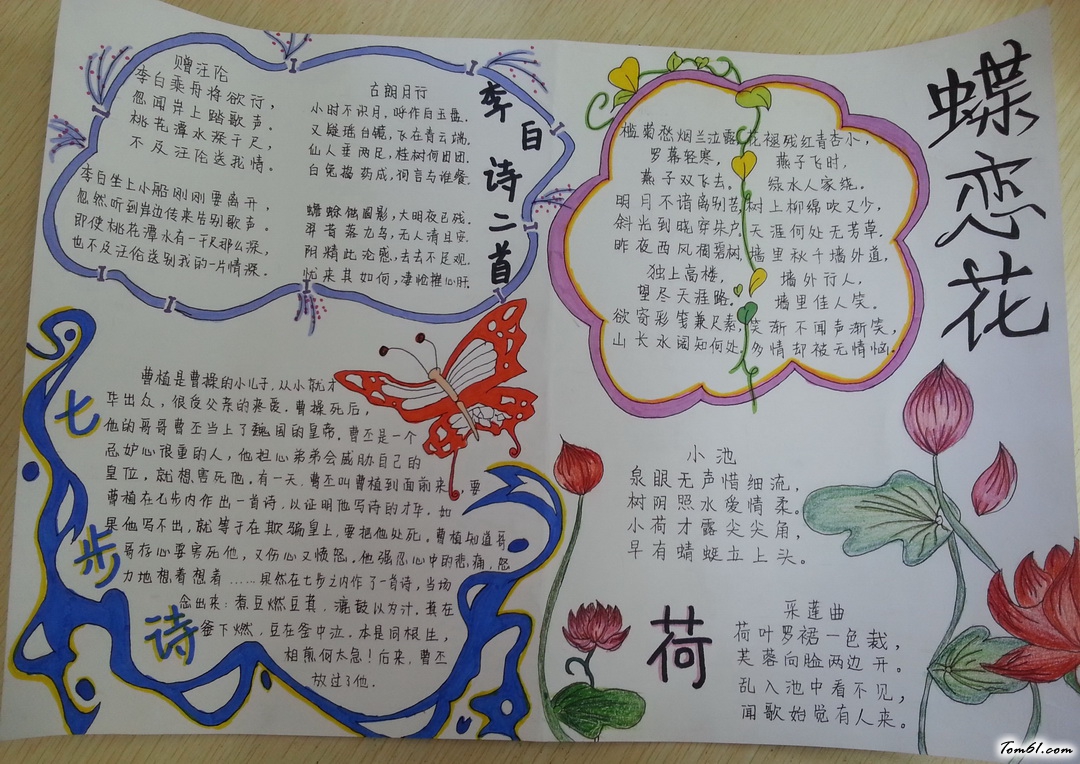 李白诗二首
赠汪伦
李白乘舟将欲行，
忽闻岸上踏歌声。
桃花潭水深千尺，
不及汪伦送我情。
李白坐上小船刚刚要离开，
忽然听到岸边传来告别歌声。
即使桃花潭水有一千尺那么深，
也不及汪伦送别我的一片情深。
古朗月行
小时不识月，呼作白玉盘。
又疑瑶台镜，飞在青云端。
仙人垂两足，桂树何团团。
白兔捣药成，问言与谁餐。
蟾蜍蚀圆影，大明夜已残。
羿昔落九乌，天人清且安。
阴精此沦惑，去去不足观。
忧来其如何，凄怆摧心肝
七步诗
曹植是曹操的小儿子，从小就才
华出众，很受父亲的疼爱。曹操死后，
他的哥哥曹丕当上了魏国的皇帝。曹丕是一个
忌妒心很重的人，他担心弟弟会威胁自己的
皇位，就想害死他。有一天，曹丕叫曹植到面前来，要
曹植在七步内作出一首诗，以证明他写诗的才华。如
果他写不出，就等于在欺骗皇上，要把他处死。曹植知道哥
哥存心要害死他，又伤心又愤怒。他强忍心中的悲痛，努
力地想着想着……果然在七步之内作了一首诗，当场
念出来：煮豆燃豆萁，漉豉以为汁。萁在
釜下燃，豆在釜中泣。本是同根生，
相煎何太急！后来，曹丕
放过了他。
蝶恋花
槛菊愁烟兰泣露
罗幕轻寒，
燕子双飞去。
明月不谙离别苦
斜光到晓穿朱户
昨夜西风凋碧树
独上高楼，
望尽天涯路。
欲寄彩笺兼尺素，
山长水阔知何处
花褪残红青杏小，
燕子飞时，
绿水人家绕。
树上柳绵吹又少，
天涯何处无芳草。
墙里秋千墙外道，
墙外行人，
墙里佳人笑。
笑渐不闻声渐笑，
多情却被无情恼
小池
泉眼无声惜细流，
树阴照水爱情柔。
小荷才露尖尖角，
早有蜻蜓立上头。
荷
采莲曲
荷叶罗裙一色裁，
芙蓉向脸两边开。
乱入池中看不见，
闻歌始觉有人来。
Tom61.com